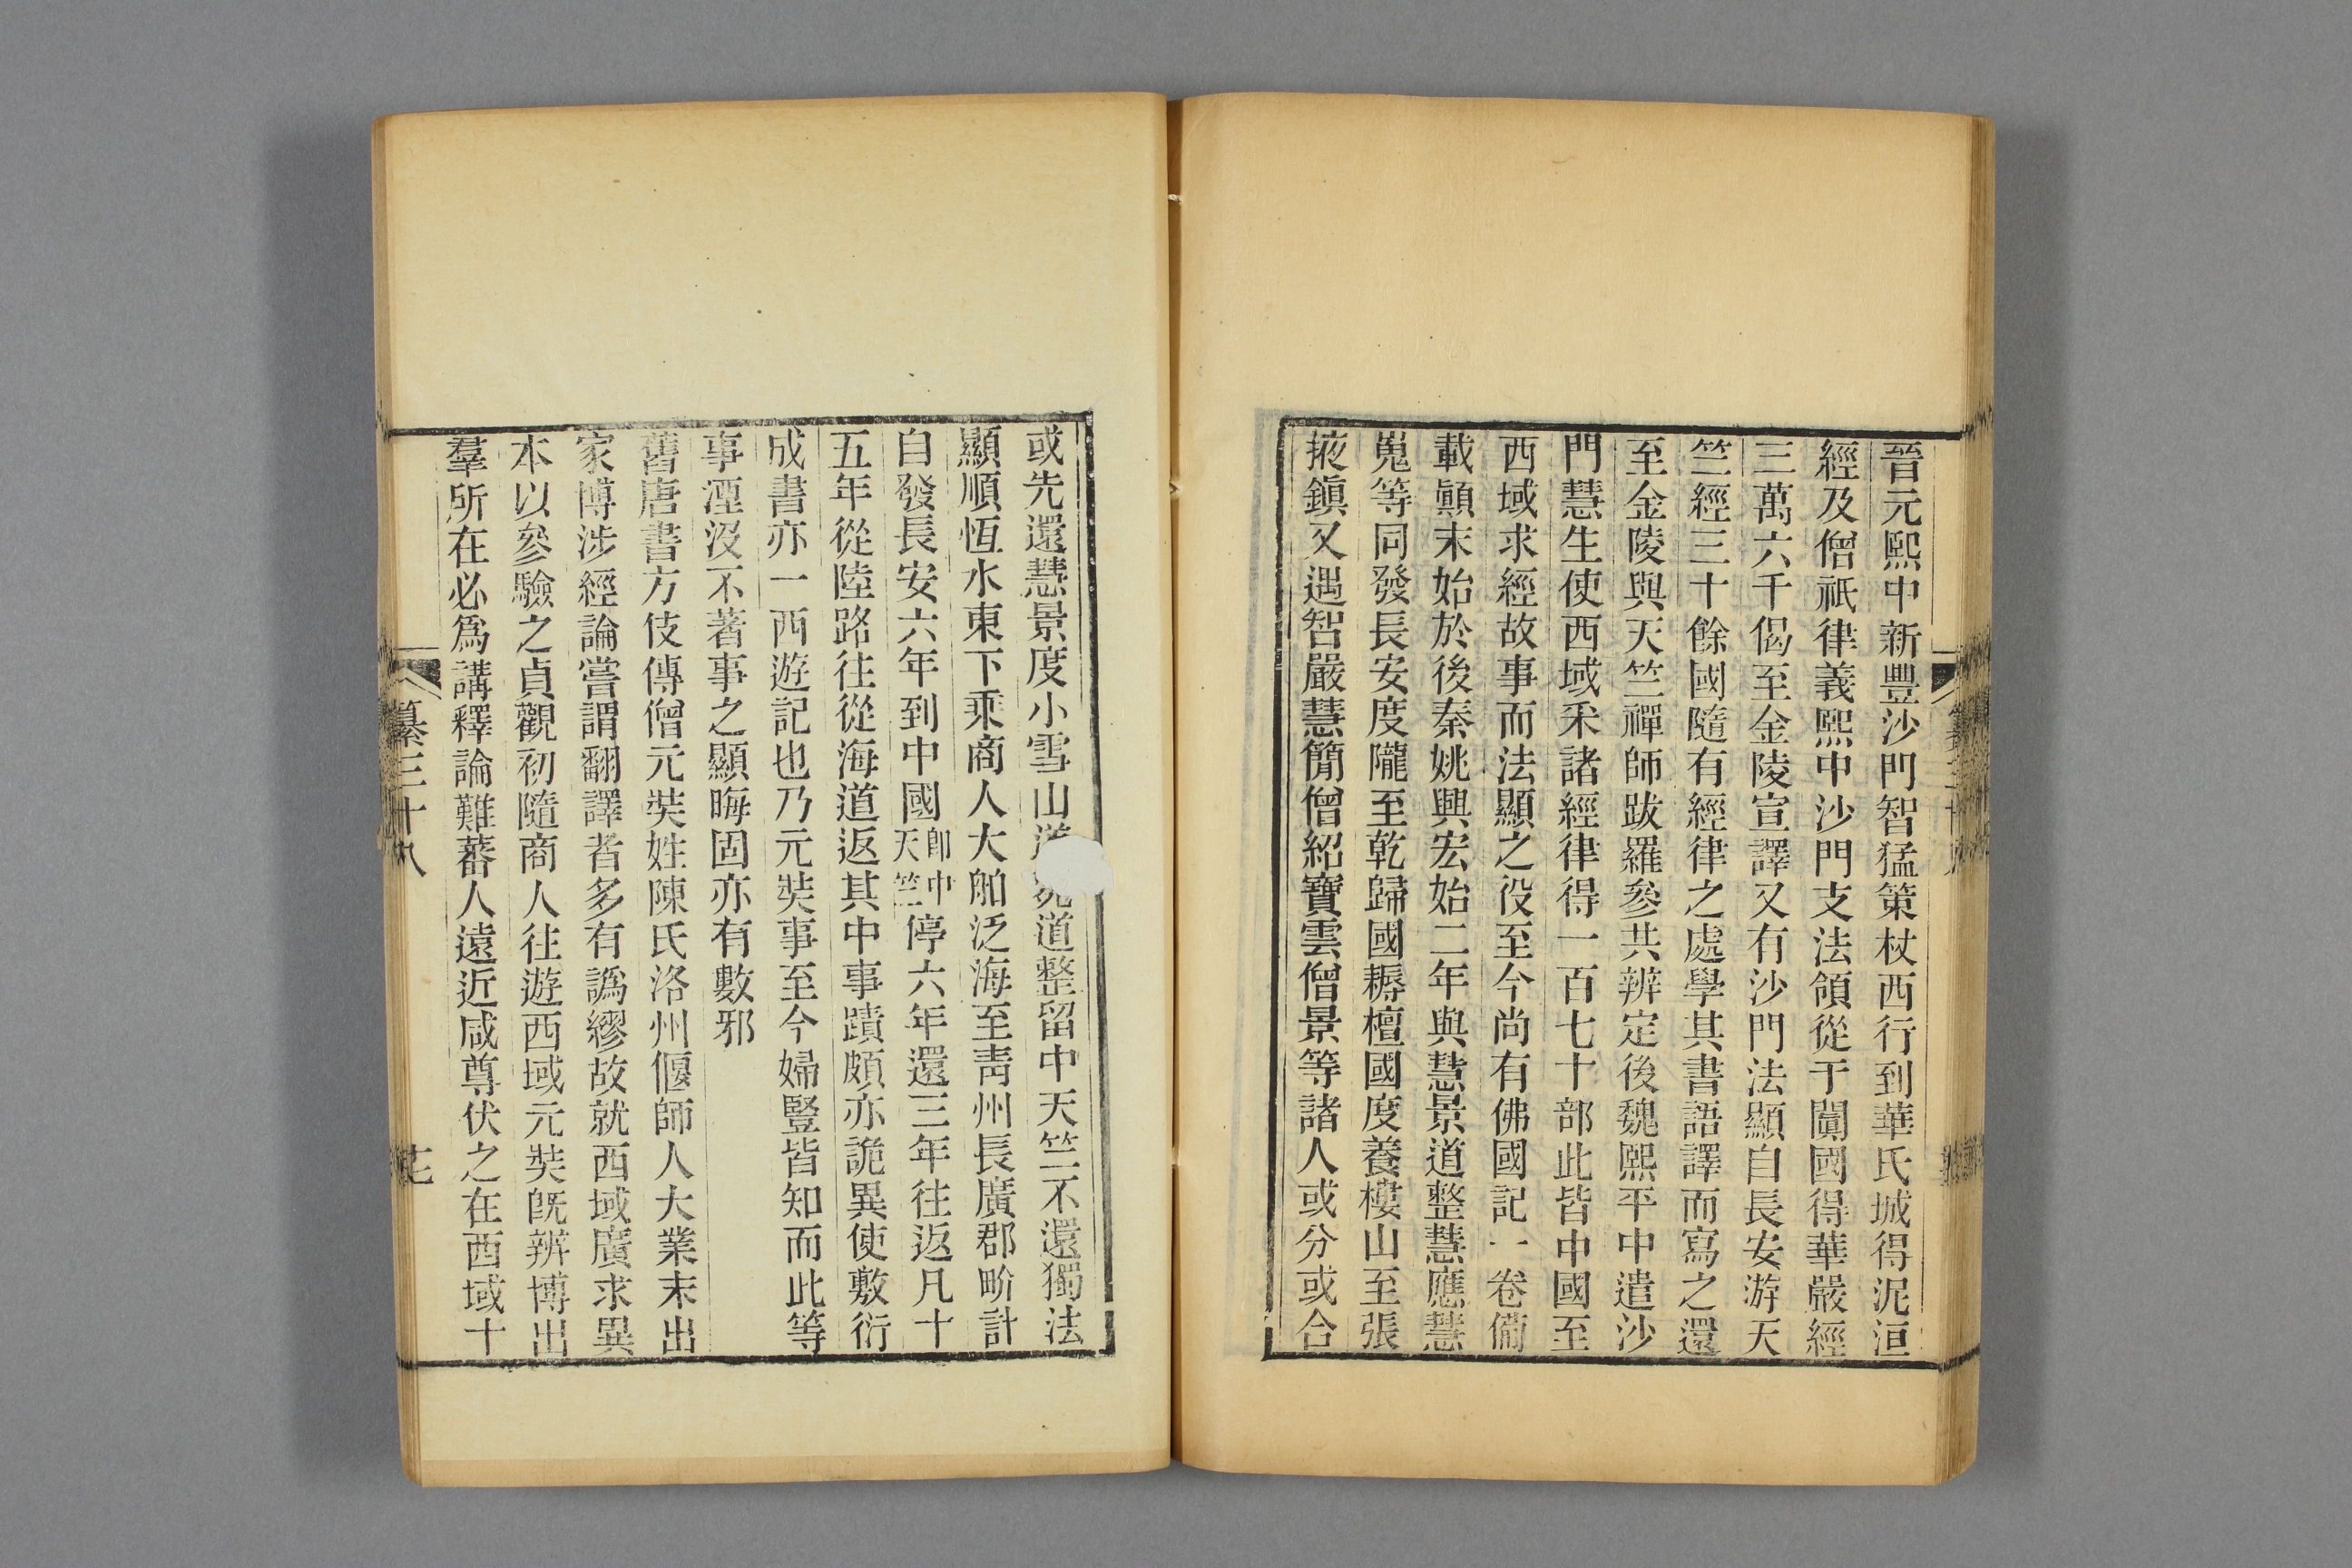 晉元熙中新豐沙門智猛策杖西行到華氏城得泥洹
經及僧祇律義熙中沙門支法領從于闐國得華嚴經
三萬六千偈至金陵宣譯又有沙門法顯自長安游天
竺經三十餘國隨有經律之處學其書語譯而寫之還
至金陵與天竺禪師跋羅參共辨定後魏熙平中遣沙
門慧生使西域采諸經律得一百七十部此皆中國至
西域求經故事而法顯之役至今尚有佛國記一卷僃
載顚末始於後秦姚興宏始二年與慧景道整慧應慧
嵬等同發長安度隴至乾歸國耨檀國度養樓山至張
掖鎭又遇智嚴慧簡僧紹寶雲僧景等諸人或分或合
或先還慧景度小雪山道整留中天竺不還獨法
顯順恆水東下乘商人大舶泛海至靑州長廣郡畍計
自發長安六年到中國卽中天竺停六年還三年往返凡十
五年從陸路往從海道返其中事蹟頗亦詭異使敷衍
成書亦一西遊記也乃元奘事至今婦豎皆知而此等
事湮沒不著事之顯晦固亦有數邪
舊唐書方伎傳僧元奘姓陳氏洛州偃師人大業末出
家博涉經論嘗謂翻譯者多有譌繆故就西域廣求異
本以參驗之貞觀初隨商人往遊西域元奘旣辨博出
羣所在必爲講釋論難蕃人遠近咸尊伏之在西域十
纂三十八